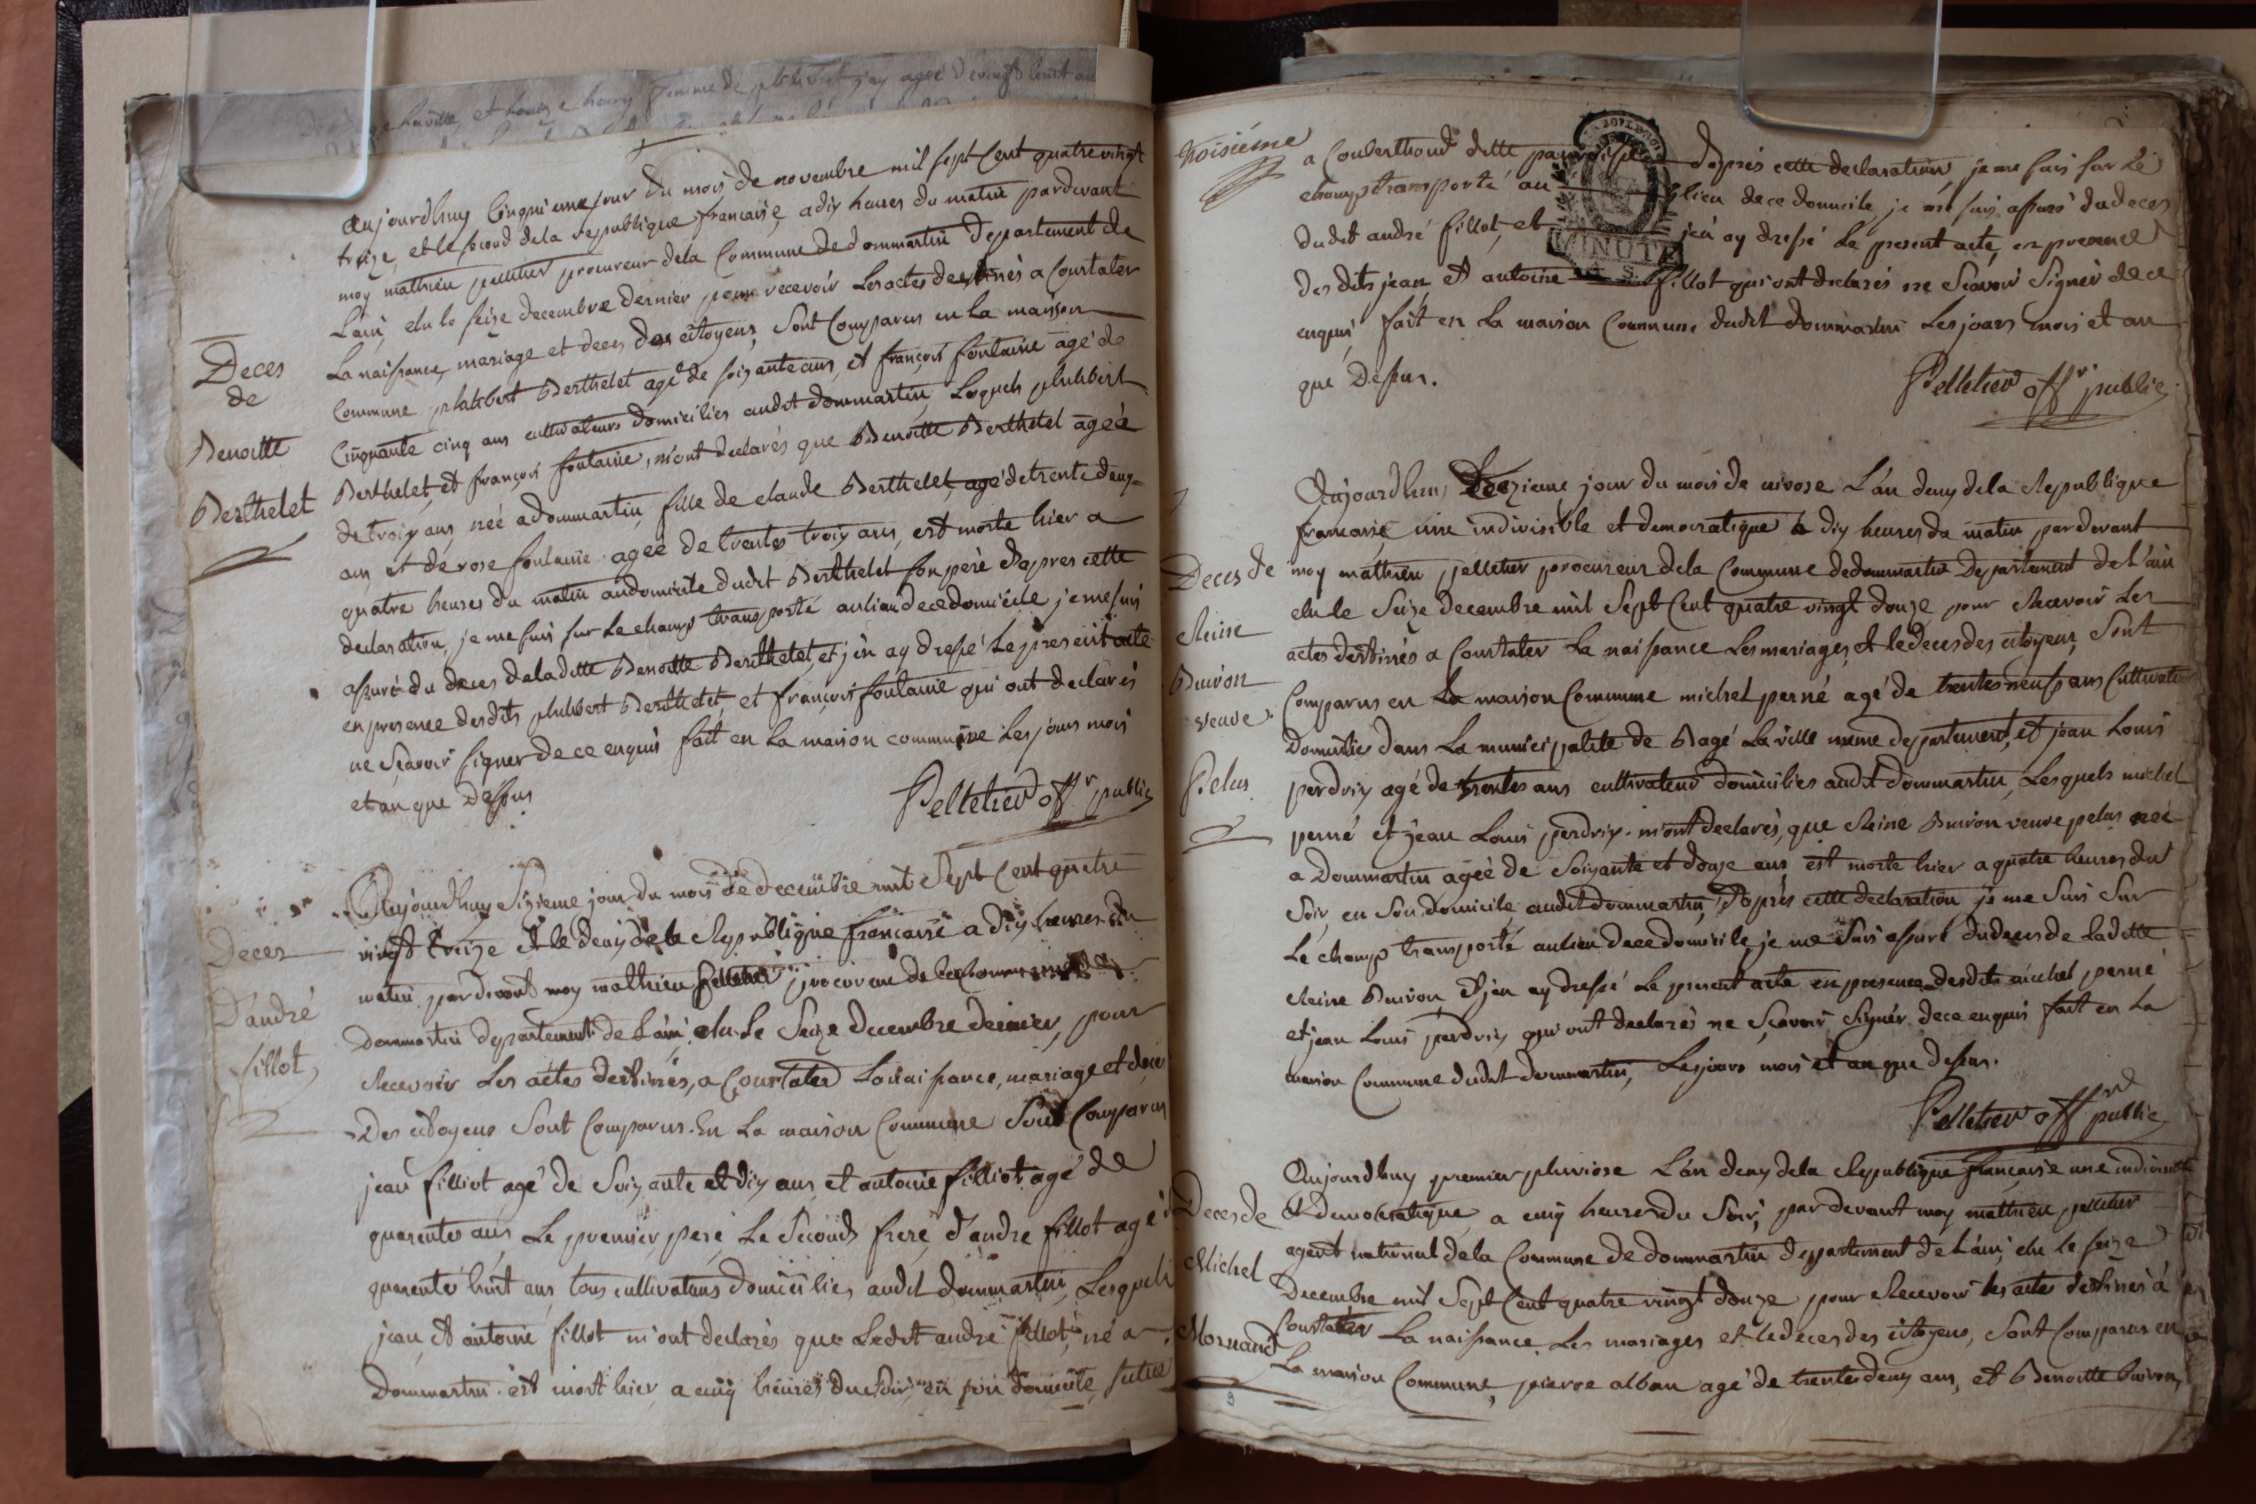 Aujourdhuy Cinquieme jour du mois de novembre mil sept Cent quatre vingt
treize, et le second dela republique francaise, a dix heures du matin pardevant
moy mathieu pelletier procureur dela Commune de dommartin departement de
L'ain, elu le seize decembre dernier pour recevoir Les actes destinés a Constater
La naissance, mariage et deces des citoyens, sont Comparus en La maison
Commune philibert Berthelet agé de soixante ans, et françois fontaine agé de
Cinquante cinq ans cultivateurs domiciliés audit dommartin, Lesquels philibert
Berthelet, et françois fontaine, m'ont declarés que Benoitte Berthelet agéé
de trois ans, néé a dommartin, fille de claude Berthelet, agé de trente deux
ans et de rose fontaine agéé de trentes trois ans, est morte hier a
quatre heures du matin au domicile dudit Berthelet son peré d'apres cette
declaration, je me suis sur Le champ transporté au lieu de ce domicile je me suis
assuré du deces de la ditte Benoitte Berthelet, et j'en ay dressé Le present acte
en presence desdits philibert Berthelet, et françois fontaine qui ont declarés
ne sçavoir signer de ce enquis fait en La maison commune Les jours mois
et an que Dessus
Pelletier offr public
Deces
de
Benoitte
Berthelet
Aujourdhuy Sixieme jour du mois de decembre mil Sept Cent quatre
vingt treize et le deux de la Republique francaise a dix heures du
matin pardevant moy mathieu pelletier procureur de la Commune de
dommartin departement de L'ain, elu Le Seize decembre dernier, pour
Recevoir Les actes destinés, a Constater La naissance, mariage et deces
Des citoyens Sont Comparus. En La maison Commune Sont Comparus
jean filliot agé de Soixante et dix ans et antoine filliot agé de
quarentes ans Le premier peré Le Seconds freré d'andré fillot agé
quarente huit ans, tous cultivateurs domiciliés audit dommartin, Lesquels
jean, Et antoine fillot m'ont declarés que Ledit andré fillot, né a
Dommartin est mort hier a cinq heures du Soir en son domicile, situé
Deces
D'andré
fillot
troisiéme
a Couberthoud ditte paroisse d'aprés cette declaration, je me suis sur Le
champ transporté au lieu de ce domicile je me suis assuré du deces
dudit andré fillot, et j'en ay dressé Le present acte, en presence
des dits jean et antoine fillot qui ont declarés ne Scavoir Signér de ce
enquis, fait en La maison Commune dudit dommartin Les jours mois et an
que Dessus.
MINUTE
Pelletier offr public
Aujourdhuy jour du mois de nivose L'an deux dela Republique
francaise une indivisible et democratique a dix heures du matin par devant
moy mathieu pelletier procureur dela Commune de dommartin Departement de L'ain
elu le Seize decembre mil Sept Cent quatre vingt douze pour Recevoir Les
actes destinés a Constater La naissance Les mariages, et le deces des citoyens, Sont
Comparus en La maison Commune michel perné agé de trentes neuf ans Cultivateur
domicilié dans La municipalité de Bagé La ville meme departement, et jean Louis
perdrix agé de trentes ans cultivateur domiciliés audit dommartin, Lesquels michel
perné et jean Louis perdrix m'ont declarés, que Reine Buiron veuve pelus néé
a Dommartin agéé de Soixante et douze ans est morte hier a quatre heures du
Soir, en Son domicile audit dommartin, D'aprés cette declaration je me Suis Sur
Le champ transporté au lieu de ce domicile je me Suis assuré du deces de La ditte
Reine Buiron Et j'en ay dressé Le present acte en presence desdits michel perné
et jean Louis perdrix qui ont declarés ne Sçavoir Signér de ce enquis fait en La
maison Commune dudit dommartin, Les jours mois et an que dessus.
Pelletier offr public
Deces de
Reine
Buiron
veuve
Pelus
Aujourdhuy premier pluviose L'an deux dela Republique française une indivisible
Et democratique, a cinq heures du Soir, par devant moy mathieu pelletier
agent national dela Commune de dommartin departement de L'ain, elu le seize
Decembre mil Sept Cent quatre vingt douze pour Recevoir les actes destinés à
Constater La naissance. Les mariages et le deces des citoyens, sont Comparus en
La maison Commune, pierre alban agé de trentes deux ans, et Benoitte buiron,
Deces de
Michel
Mornand